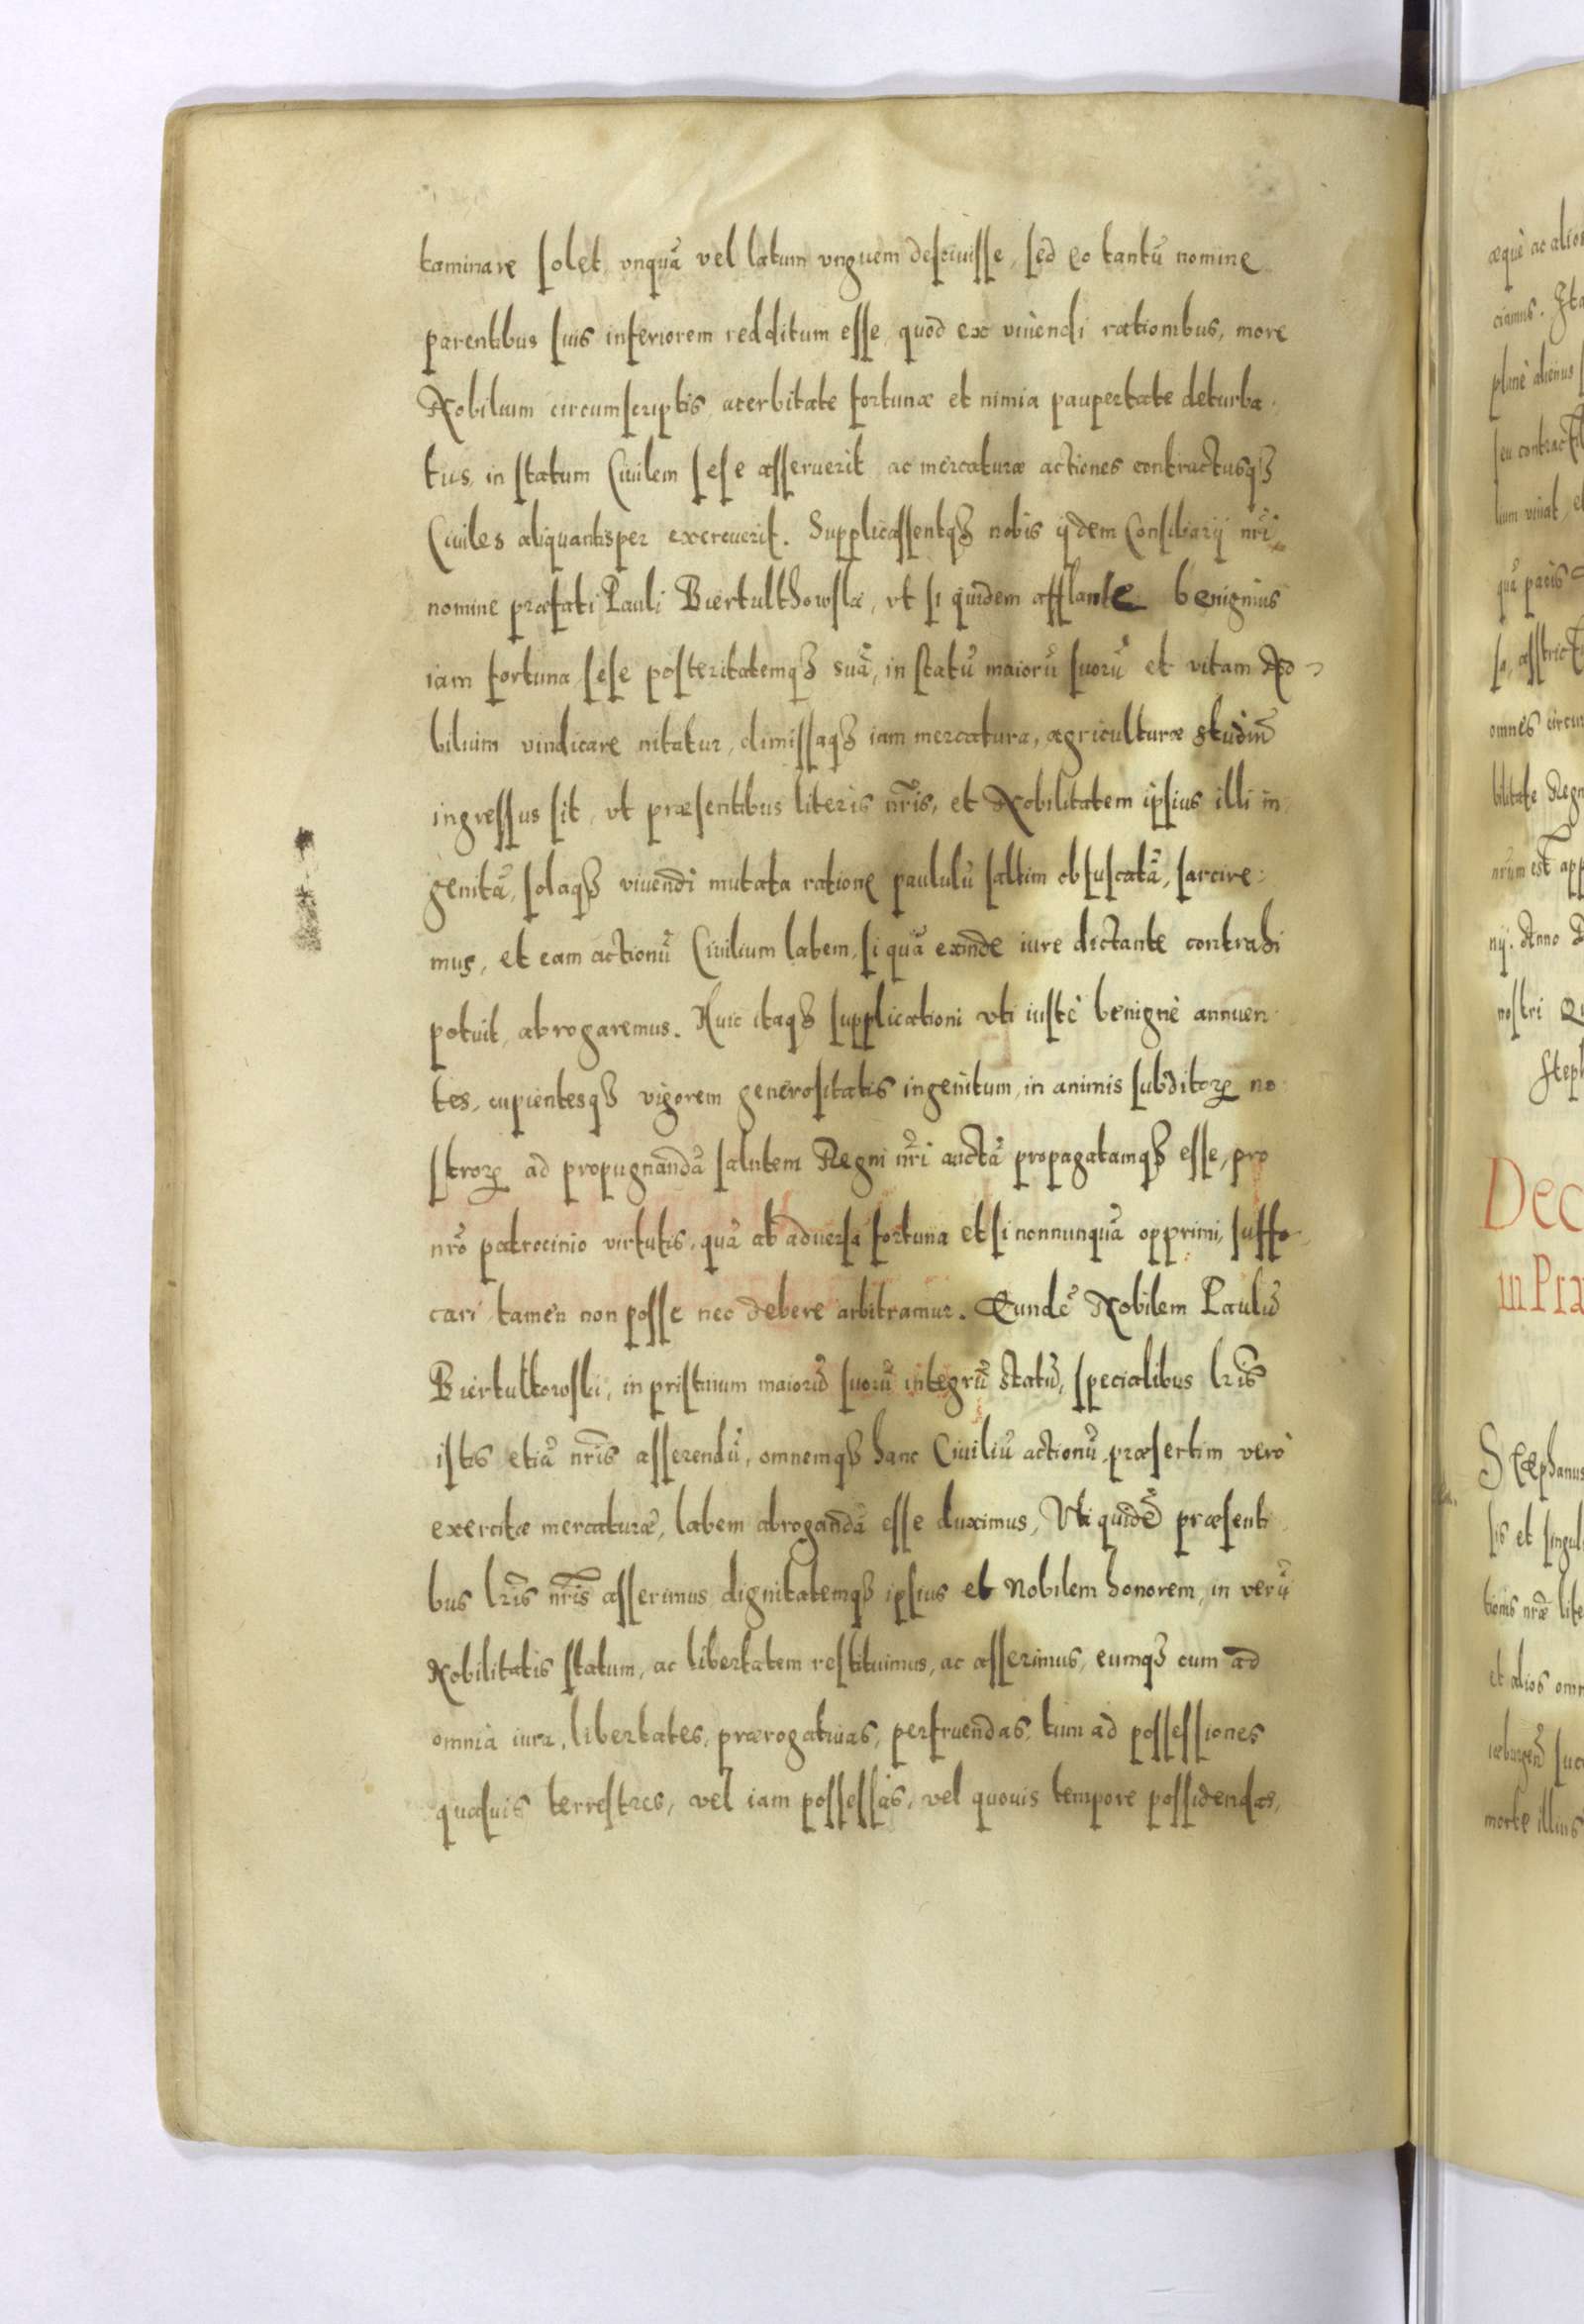 taminare solet, vnquã vel latum vnguem desciuisse, sed eo tantũ nomine
parentibus suis inferiorem redditum esse, quod ex viuendi rationibus, more
Nobilium circumscriptis, acerbitate fortunæ et nimia paupertate deturba-
tus, in statum Ciuilem sese asseruerit ac mercaturæ actiones contractusqȝ
Ciuiles aliquantisper exercuerit. Supplicassentqȝ nobis ijdem Consiliarij nr̃i,
nomine præfati Pauli Biertulthowski, vt si quidem afflante benignius
iam fortuna, sese posteritatemqȝ suã, in statũ maiorũ suorũ et vitam No-
bilium vindicare nitatur, dimissaqȝ iam mercatura, agriculturæ studiũ
ingressus sit, vt præsentibus literis nr̃is, et Nobilitatem ipsius illi in-
genitã, solaqȝ viuendi mutata ratione paululũ saltim obfuscatã, sarcire-
mus, et eam actionũ Ciuilium labem, si quã exinde iure dictante contrahi
potuit, abrogaremus. Huic itaqȝ supplicationi vti iustè benignè annuen-
tes, cupientesqȝ vigorem generositatis ingenitum, in animis subditoꝝ no-
stroꝝ ad propugnandã salutem Regni nr̃i auctã propagatamqȝ esse, pro
nr̃o patrocinio virtutis, quã ab aduersa fortuna etsi nonnunquã opprimi, suffo-
cari tamen non posse nec debere arbitramur. Eundẽ Nobilem Paulũ
Biertultowski, in pristinum maiorũ suorũ integrũ statũ, specialibus lr̃is
istis etiã nr̃is asserendũ, omnemqȝ hanc Ciuiliũ actionũ, præsertim verò
exercitæ mercaturæ, labem abrogandã esse duximus, Vti quidẽ præsenti-
bus lr̃is nr̃is asserimus dignitatemqȝ ipsius et Nobilem honorem, in verũ
Nobilitatis statum, ac libertatem restituimus, ac asserimus, eumqȝ cum ad
omnia iura, libertates, prærogatiuas, perfruendas, tum ad possessiones
quasuis terrestres, vel iam possessas, vel quouis tempore possidendas,
æquè ac alios
plane alienus
seu contracti
omnes circum
nostri
Steph
Dec
in Præ
Stephanus
lis et singul
tionis nr̃æ lite
et alios omn
morte illius